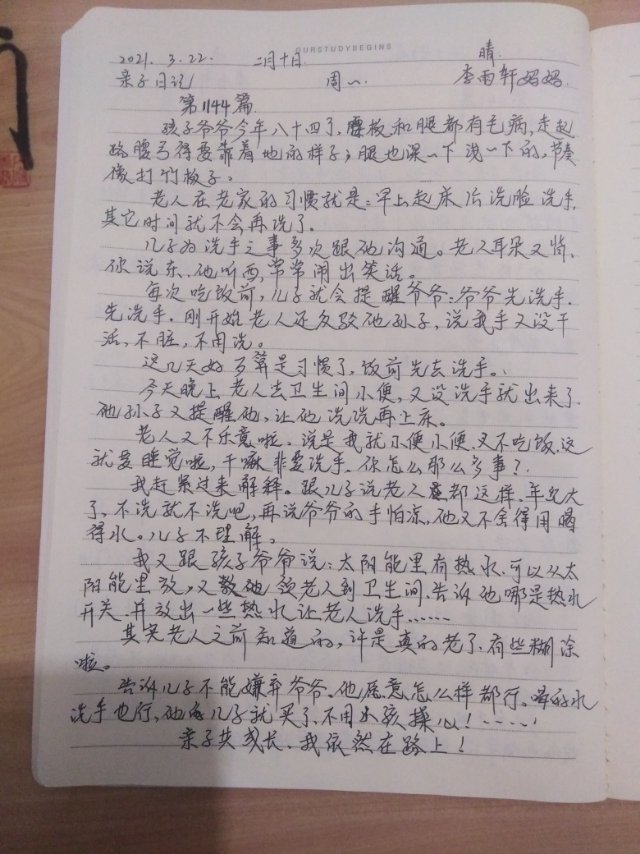 OURSTUDYBEGINS
2021. 3.22. 二月十日 晴.
亲子日记 周一. 李雨轩妈妈.
第1144篇.
孩子爷爷今年八十四了,腰板和腿都有毛病,走起
路腰弓得要靠着地的样子;腿也深一下浅一下的,节奏
像打竹板子。
老人在老家的习惯就是:早上起床后洗脸洗手,
其它时间就不会再洗了。
儿子为洗手之事多次跟他沟通。老人耳朵又背,
你说东,他听西,常常闹出笑话。
每次吃饭前,儿子就会提醒爷爷:爷爷先洗手,
先洗手.刚开始老人还反驳他孙子,说我手又没干
活,不脏,不用洗。
这几天好歹算是习惯了,饭前先去洗手。
今天晚上老人去卫生间小便,又没洗手就出来了.
他孙子又提醒他,让他洗洗再上床。
老人又不乐意啦.说是我就小便小便又不吃饭,这
就要睡觉啦,干嘛非要洗手.你怎么那么多事?
我赶紧过来解释。跟儿子说老人都这样.年纪大
了,不洗就不洗吧,再说爷爷的手怕凉,他又不舍得用喝
得水。儿子不理解。
我又跟孩子爷爷说:太阳能里有热水,可以从太
阳能里放,又领老人到卫生间,告诉他哪是热水
开关.并放出一些热水让老人洗手……
其实老人之前知道的,许是真的老了、有些糊涂
啦。
告诉儿子不能嫌弃爷爷.他愿意怎么样都行.喝的水
洗手也行,他的儿子就买了、不用小孩操心!……
亲子共成长.我依然在路上!